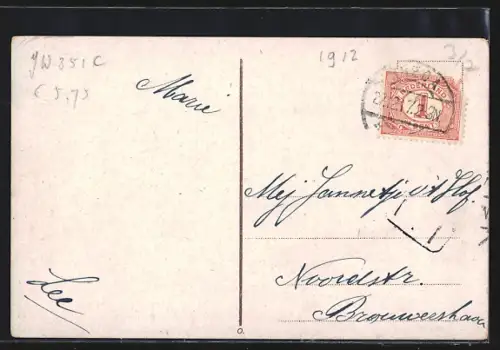 JW351C
€ 5,75
1912
3/2
Marie
NEDERLAND
1
Mej Jannetje v/t Hof.
Noordstr.
Brouwershaven
Lee
a